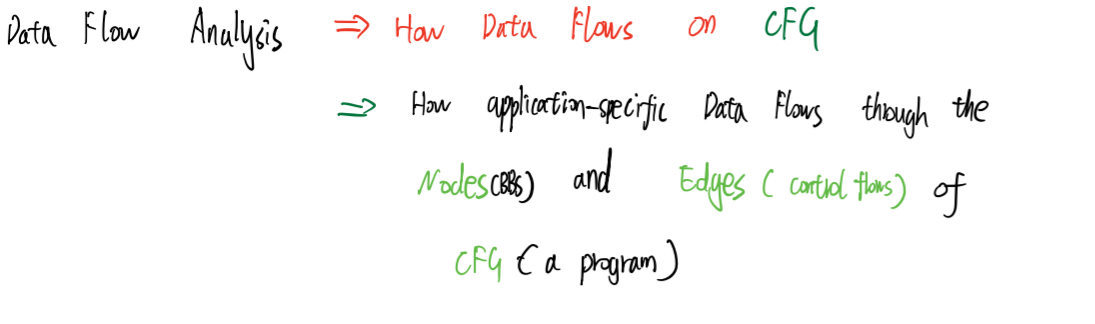 Data Flow Analysis ⇒ How Data Flows on CFG
⇒ How application-specific Data Flows through the
Nodes(BBs) and Edges (control flows) of
CFG (a program)